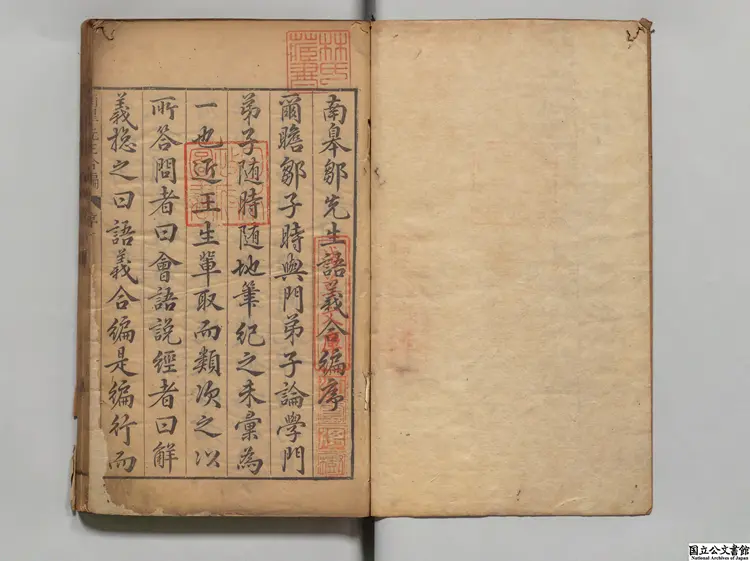 南皋鄒先生語義合編序
爾瞻鄒子時與門弟子論學門
弟子随時随地筆纪之未彙為
一也近王生輩取而類次之以
所答問者曰會語說經者曰解
義揔之曰語義合編是編行而
林氏
藏書
国立公文書館
National Archives of Japan